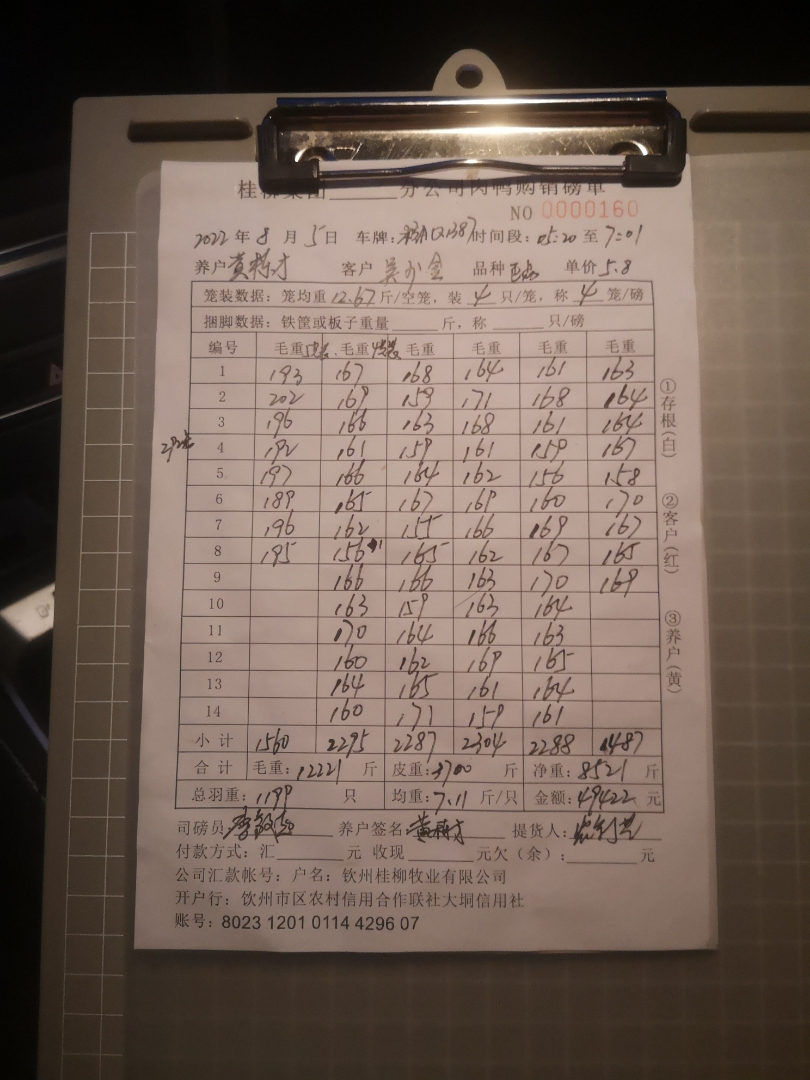 桂柳集团______分公司肉鸭购销磅单
NO 0000160
2022 年 8 月 5 日 车牌: 时间段: 05:20 至 7:01
养户 黄 才 客户 吴 金 品种 单价 5.8
笼装数据: 笼均重 12.67 斤/空笼, 装 4 只/笼, 称 4 笼/磅
捆脚数据: 铁筐或板子重量______斤, 称______只/磅
编号 毛重 毛重 毛重 毛重 毛重 毛重
1 193 167 168 164 161 163
2 202 169 159 171 168 164
3 196 166 163 168 161 164
4 192 161 159 161 159 167
5 197 166 164 162 156 158
6 189 165 167 169 160 170
7 196 162 155 166 169 167
8 195 156 165 162 167 165
9 166 166 163 170 169
10 163 159 163 164
11 170 164 166 163
12 160 162 169 165
13 164 165 161 164
14 160 171 159 161
小计 1560 2295 2287 2304 2288 1487
合计 毛重: 12221 斤 皮重: 3700 斤 净重: 8521 斤
总羽重: 1199 只 均重: 7.11 斤/只 金额: 49422 元
司磅员 养户签名 黄 才 提货人:
付款方式: 汇______元 收现______元欠(余):______元
公司汇款帐号: 户名: 钦州桂柳牧业有限公司
开户行: 钦州市区农村信用合作联社大垌信用社
账号: 8023 1201 0114 4296 07
①存根(白)
②客户(红)
③养户(黄)